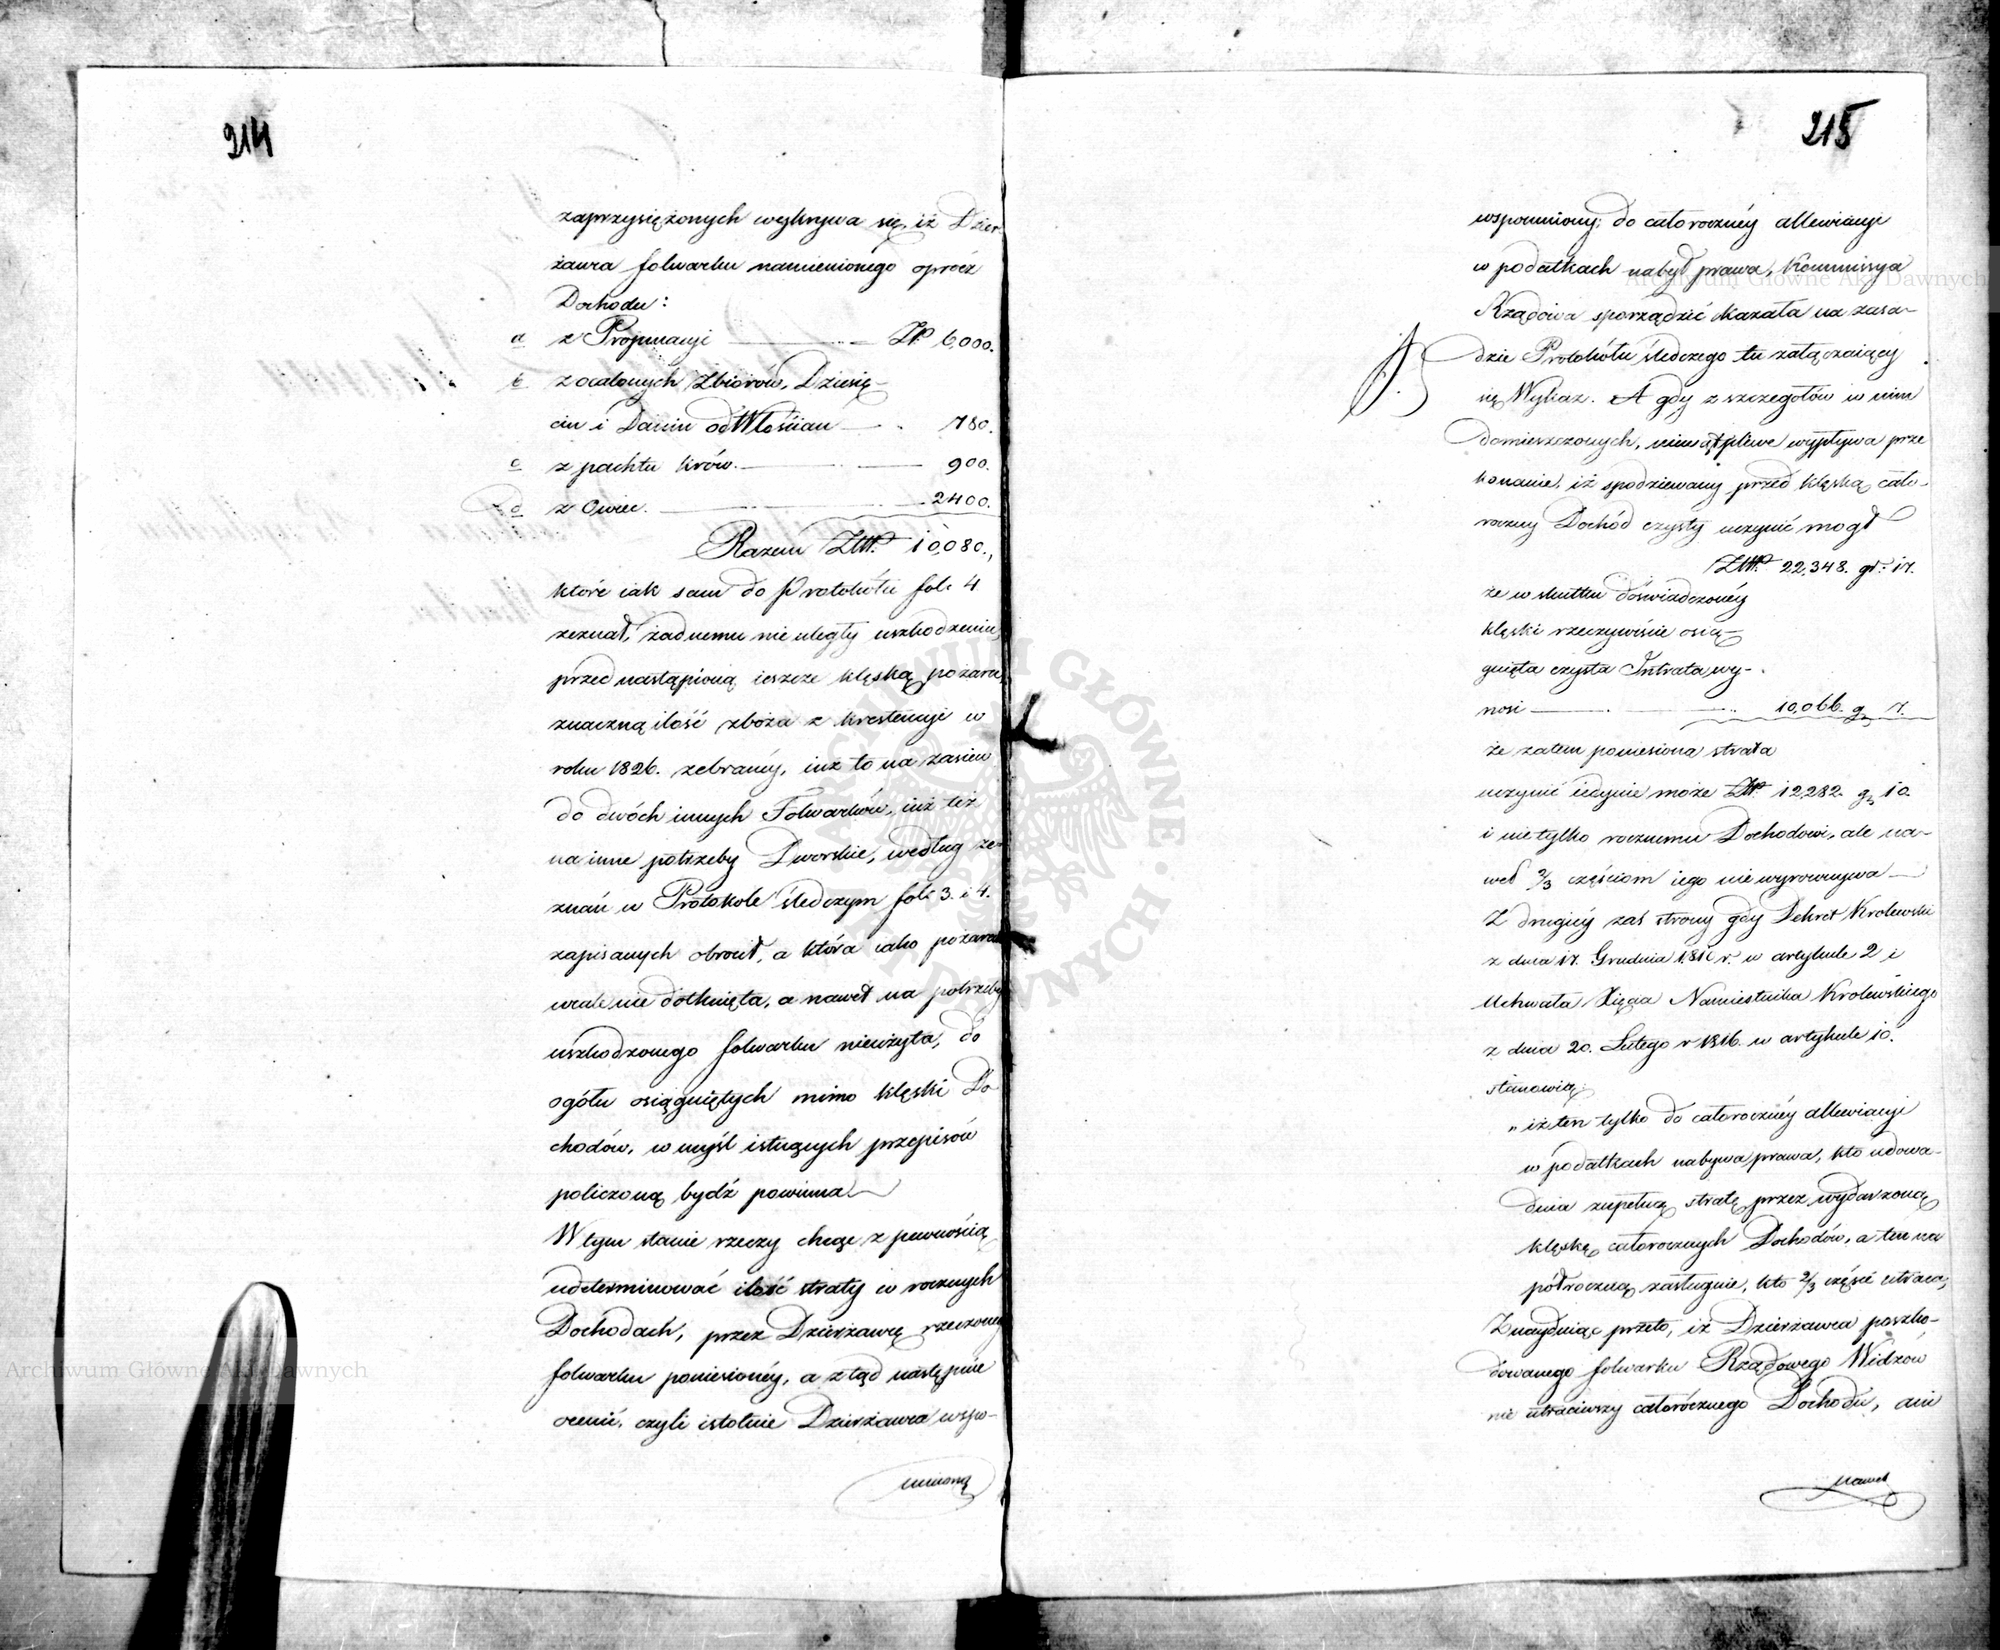 214
zaprzysiężonych wykrywa się, iż Dzier-
żawca folwarku namienionego oprócz
Dochodu:
a z Propinacyi ZłP. 6,000.
b z ocalonych Zbiorów, Dziesię-
cin i Danin od Włościan 780.
c z pachtu krów. 900.
d z Owiec. 2400.
Razem ZłP. 10,080.,
które iak sam do Protokółu fol: 4
zeznał, żadnemu nie uległy uszkodzeniu,
przed nastąpioną ieszcze klęską pożaru,
znaczną ilość zboża z krestencyi w
roku 1826. zebranéy, iuż to na zasiew
do dwóch innych Folwarków, iuż też
na inne potrzeby Dworskie, według ze-
znań w Protokole śledczym fol: 3. i 4.
zapisanych obrocił, a która iako pożarem
wcale nie dotknięta, a nawet na potrzeby
uszkodzonego folwarku nieużyta, do
ogółu osiągniętych mimo klęski Do-
chodów, w myśl istnących przepisów
policzoną bydź powinna
W tym stanie rzeczy chcąc z pewnością
udeterminować ilość straty w rocznych
Dochodach, przez Dzierżawcę rzeczonego
folwarku poniesionéy, a ztąd następnie
ocenić, czyli istotnie Dzierżawca wspo-
mniony
215
wspomniony, do całorocznéy allewiacyi
w podatkach nabył prawa, Kommissya
Rządowa sporządzić kazała na zasa-
dzie Protokółu śledczego tu załączaiący
się Wykaz. A gdy z szczegółów w nim
domieszczonych, niewątpliwe wypływa prze
konanie, iż spodziewany przed klęską cało-
roczny Dochód czysty uczynić mogł
ZłP. 22,348. gr. 17.
że w skutku doświadczonéy
klęski rzeczywiście osią-
gnięta czysta Intrata wy-
nosi 10,066. gr 7.
że zatem poniesiona strata
uczynić iedynie może ZłP. 12,282. gr 10.
i nie tylko rocznemu Dochodowi, ale na-
wet 2/3 częściom iego nie wyrownywa
Z drugiéy zaś strony gdy Dekret Krolewski
z dnia 17. Grudnia r. w artykule 2 i
Uchwała Xięcia Namiestnika Krolewskiego
z dnia 20. Lutego r 1816. w artykule 10.
stanowią:
„ iż ten tylko do całorocznéy allewiacyi
w podatkach nabywa prawa, kto udowa-
dnia zupełną stratę przez wydarzoną
klęskę całorocznych Dochodów, a ten na
półroczną zasługuie, kto 2/3 części utraca,
Znayduiąc przeto, iż Dzierżawca poszko-
dowanego folwarku Rządowego Widzow
nie utraciwszy całorócznego Dochodu, ani
nawet
Archiwum Główne Akt Dawnych
Archiwum Główne Akt Dawnych
ARCHIWUM GŁÓWNE AKT DAWNYCH